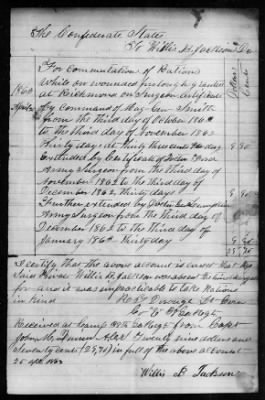 The Confederate States
To Willis B. Jackson Dr
Dollars Cents
1863
For Commutation of Rations
While on wounded furlough granted
at Richmond on Surgeon Certificate
by Command of Maj Gen Smith
from the third day of October 1862
to the third day of November 1862
thirty days at thirty three cts day 9 90
Extended by Certificate of Doctor
Army Surgeon from the third day of
November 1862 to the third day of
December 1862 thirty days 9 90
Further extended by Doctor
Army Surgeon from the third day of
December 1862 to the third day of
January 186 thirty day 9 90
29,70
I certify that the above account is correct that
said Private Willis B. Jackson was absent the time charged
for and it was impracticable to take Rations
in Kind
Co
Co E 48th Ga Regt
Received at Camp 48th Ga Regt from Capt
John M. twenty nine dollars and
seventy cents (29,70) in full of the above account
25 1863
Willis B Jackson